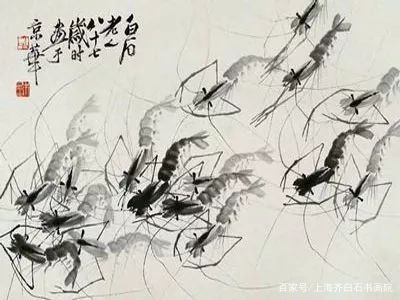 白石
老人
八十七
歲时
画于
京華
百家号/上海齐白石书画院